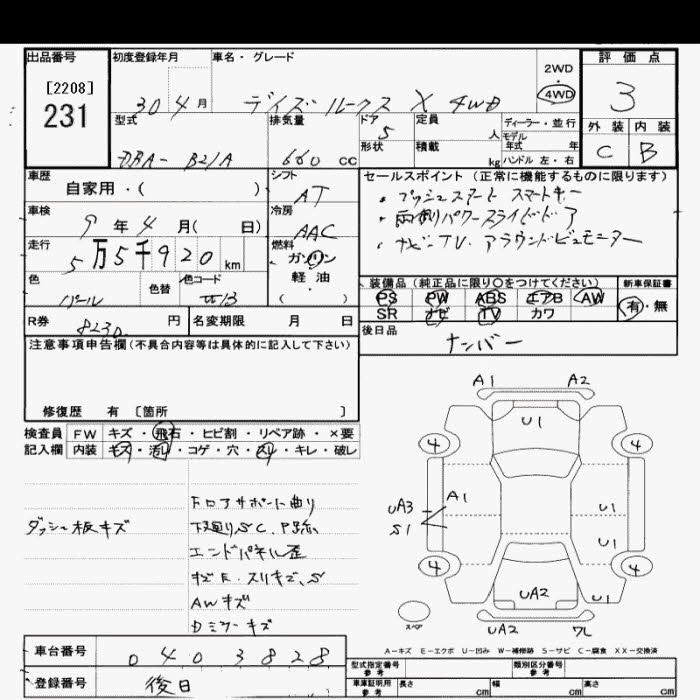 出品番号 初度登録年月 車名・グレード 2WD・4WD 評価点
[2208]
231
30年4月 デイズルークス X 4WD 3
型式 排気量 ドア 定員 人 ディーラー・並行
DBA- B21A 660 cc 5 形状 積載 kg モデル年式 年 ハンドル 左・右
外装 内装
C B
車歴 自家用・( )
シフト AT
セールスポイント(正常に機能するものに限ります)
・プッシュスタート スマートキー
・両側パワースライドドア
・ナビTV、アラウンドビューモニター
車検 9年4月( 日)
冷房 AAC
走行 5万5千920km
燃料 ガソリン・軽油・( )
色 パール 色替 色コード
装備品(純正品に限り〇をつけてください) 新車保証書
PS PW ABS エアB AW 有・無
SR ナビ TV カワ
R券 8230 円 名変期限 月 日
後日品 ナンバー
注意事項申告欄(不具合内容等は具体的に記入して下さい)
修復歴 有 [箇所 ]
検査員 FW キズ・飛石・ヒビ割・リペア跡・×要
記入欄 内装 キズ・汚レ・コゲ・穴・スレ・キレ・破レ
ダッシュ板キズ
下廻りSC、P跡
エンドパネル歪
AWキズ
Dミラーキズ
A1 A2
U1
4 4
UA3 A1 U1
S1 U1
4 4
UA2 U1
UA2 WL
スペア
A-キズ E-エクボ U-凹み W-補修跡 S-サビ C-腐食 XX-交換済
車台番号 0403828
登録番号 後日
型式指定番号 参考 類別区分番号 参考
車庫証明用 参考 長さ cm 幅 cm 高さ cm